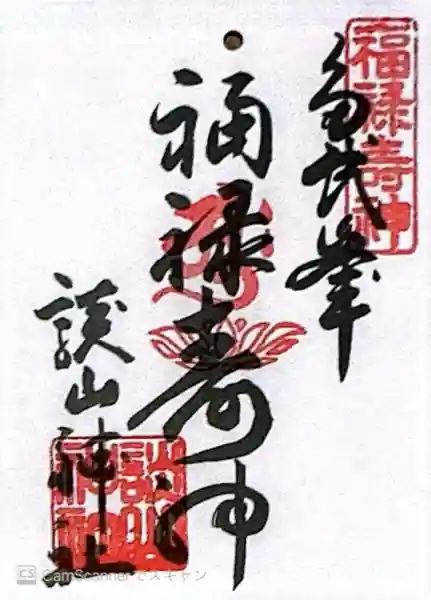 福禄寿神
多武峯
福禄寿神
談山神社
談山
神社
CS CamScannerでスキャン